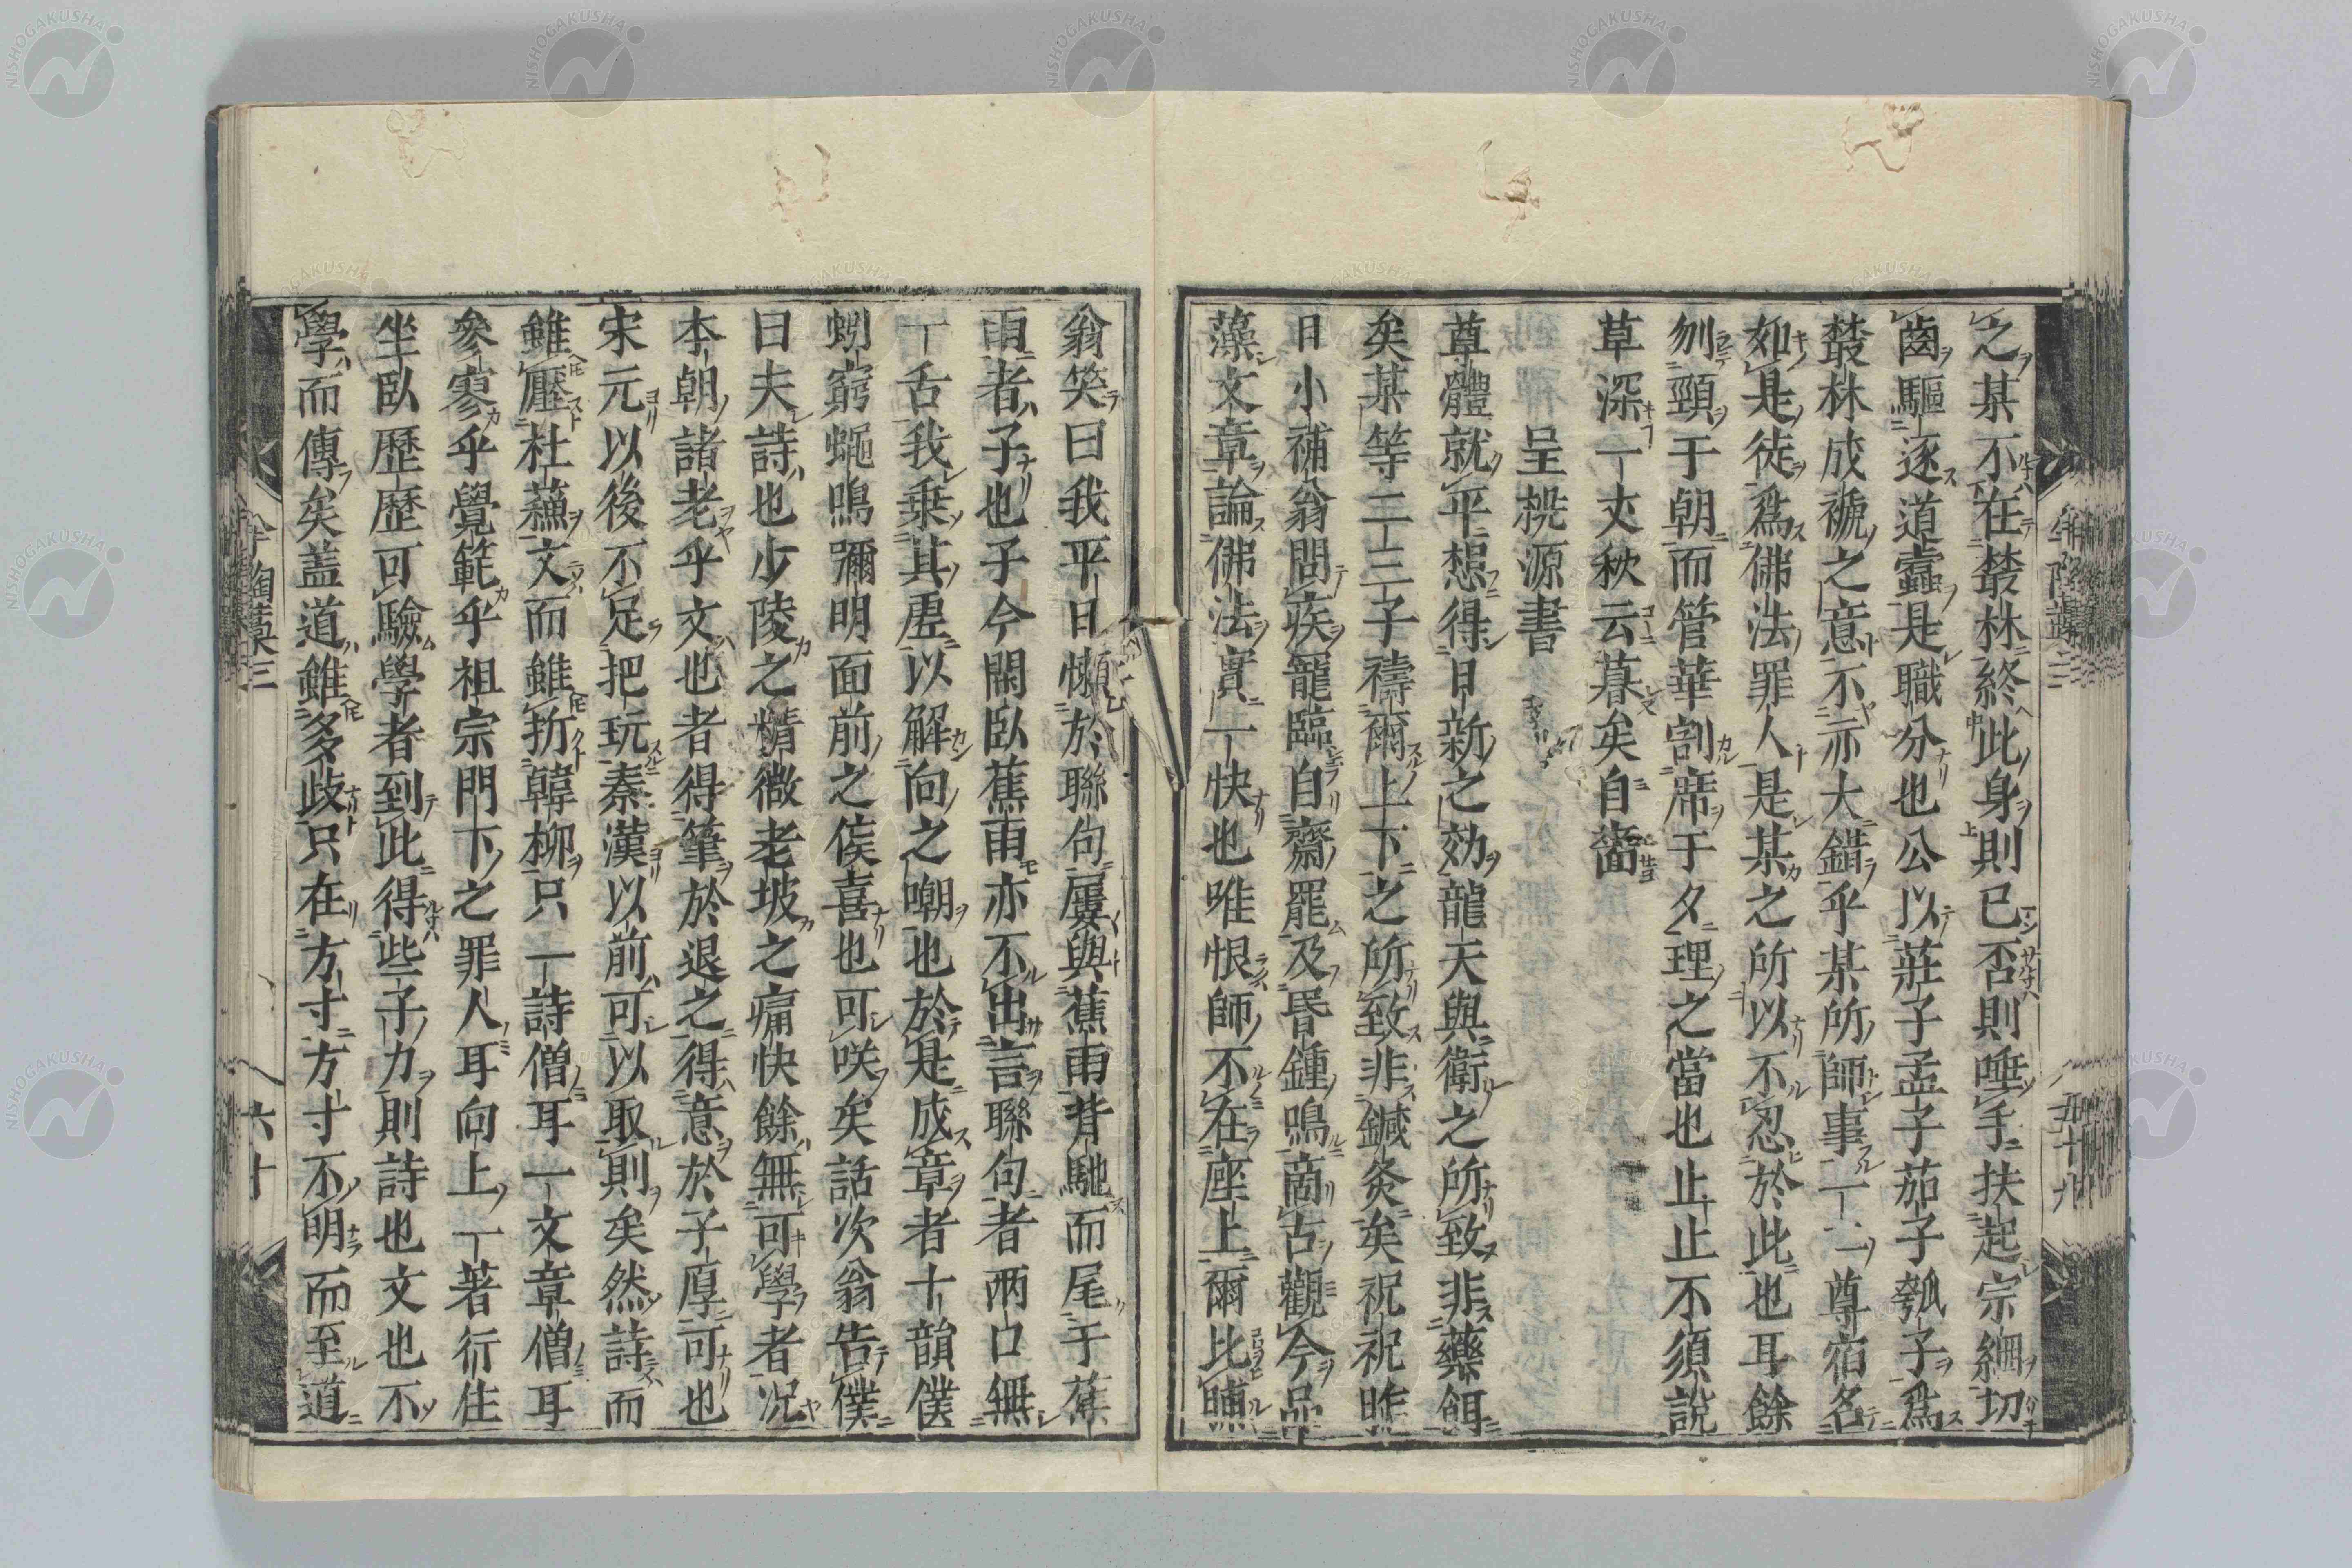 之某不在叢林終此身則已否則唾手扶起宗綱切
齒驅逐道蠧是職分也公以莊子孟子茄子瓠子爲
叢林成褫之意不亦大錯乎某所師事一一尊宿名
如是徒爲佛法罪人是某之所以不忍於此也耳餘
刎頸于朝而管華割席于夕理之當也止止不須說
草深一丈秋云暮矣自嗇
呈桃源書
尊體就平想得日新之効龍天與衛之所致非藥餌
矣某等二三子禱爾上下之所致非鍼灸矣祝祝昨
日小補翁問疾寵臨自齋罷及昏鍾鳴商古觀今品
藻文章論佛法實一快也唯恨師不在座上爾比晡
翁笑曰我平日懶於聯句屢與蕉雨背馳而尾于蕉
雨者子也子今閑臥蕉雨亦不出言聯句者兩口無
一舌我乗其虚以解向之嘲也於是成章者十韻僕
蚓窮蠅鳴彌明面前之侯喜也可咲矣話次翁告僕
曰夫詩也少陵之精微老坡之痛快餘無可學者况
本朝諸老乎文也者得筆於退之得意於子厚可也
宋元以後不足把玩秦漢以前可以取則矣然詩而
雖壓杜蘓文而雖折韓柳只一詩僧耳一文章僧耳
參寥乎覺範乎祖宗門下之罪人耳向上一著行住
坐臥歷歷可驗學者到此得些子力則詩也文也不
學而傳矣盖道雖多歧只在方寸方寸不明而至道
五十九
六十